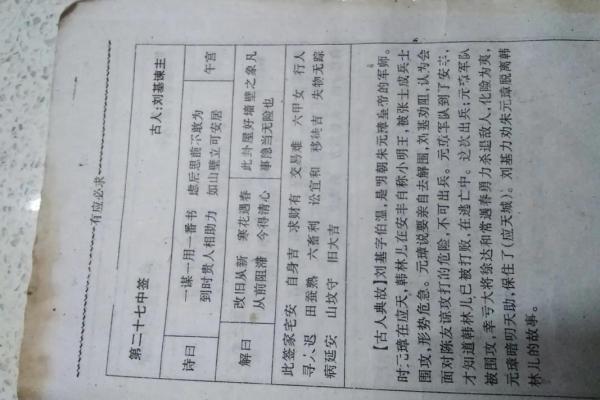 有应必求
第二十七中签 古人:刘基谏主
诗曰 一谋一用一番书 虑后思前不敢为 午宫
到时贵人相助力 如山壁立可安居
解曰 改旧从新 寒花遇春 此卦屋好墙壁之象凡
从前阻滞 今得清心 事隐当无险也
此签家宅安 自身吉 求财有 交易难 六甲女 行人
寻人迟 田蚕熟 六畜利 讼宜和 移徙吉 失物无踪
病延安 山坟守 旧大吉
【古人典故】刘基字伯温,是明朝朱元璋皇帝的军师。
时元璋在应天,韩林儿在安丰自称小明王,被张士成兵士
围攻,形势危急。元璋说要亲自去解围,刘基劝阻,认为会
面对陈友谅攻打的危险,不可出兵。元璋军队到了安丰,
才知道韩林儿已被打败,在逃亡中。这次出兵;元璋军队
被围攻,幸亏大将徐达和常遇春勇力杀退敌人,化险为夷,
元璋暗明天助,保住了(应天城)。刘基力劝朱元璋脱离韩
林儿的故事。